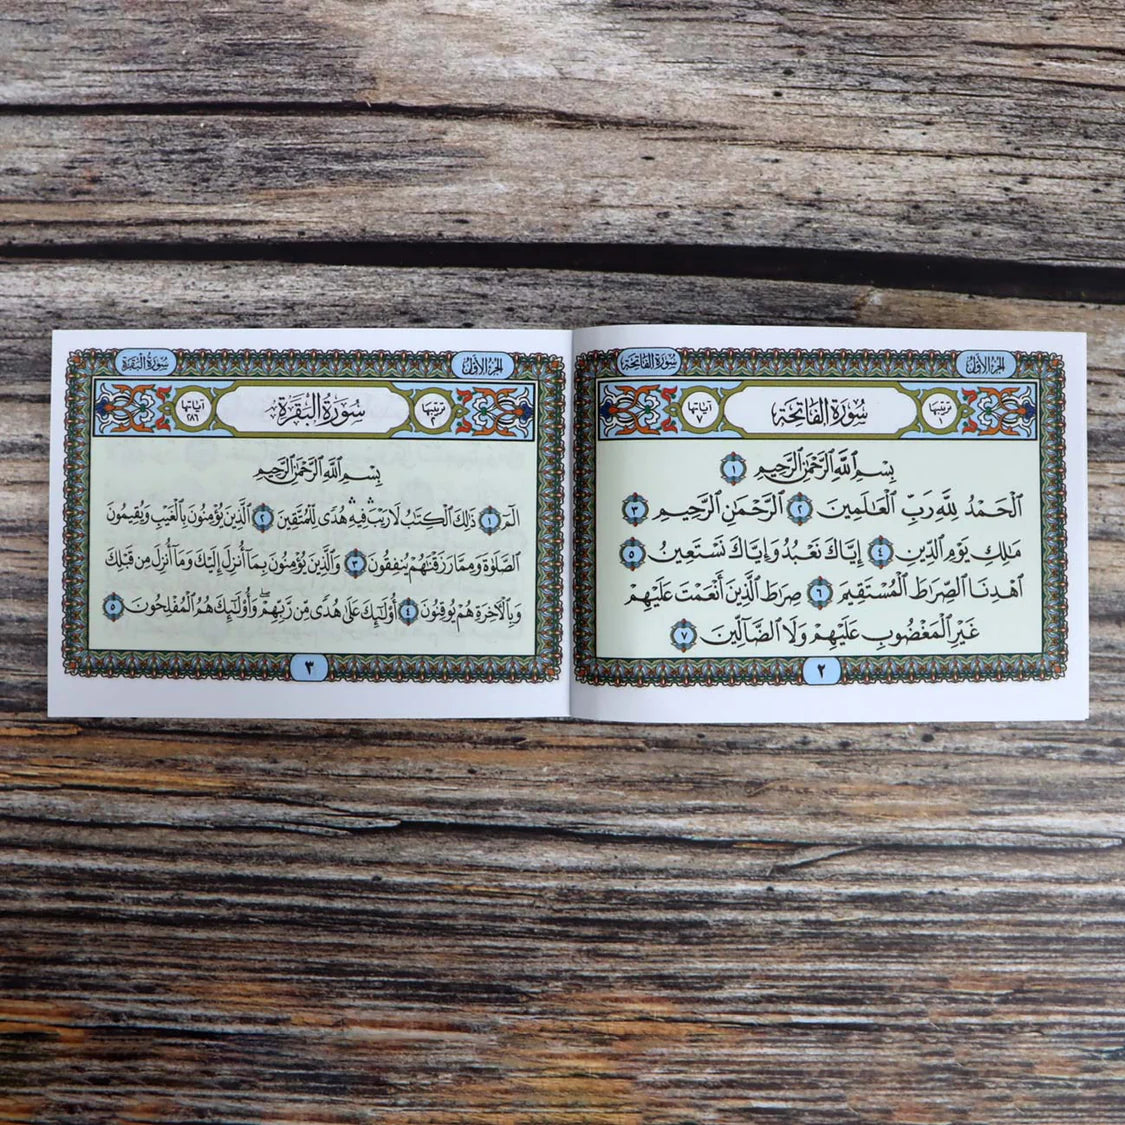 الجزء الأول
سورة الفاتحة
ترتيبها ١
سُورَةُ الفَاتِحَةِ
آياتها ٧
بِسْمِ ٱللَّهِ ٱلرَّحْمَٰنِ ٱلرَّحِيمِ ١
ٱلْحَمْدُ لِلَّهِ رَبِّ ٱلْعَٰلَمِينَ ٢ ٱلرَّحْمَٰنِ ٱلرَّحِيمِ ٣
مَٰلِكِ يَوْمِ ٱلدِّينِ ٤ إِيَّاكَ نَعْبُدُ وَإِيَّاكَ نَسْتَعِينُ ٥
ٱهْدِنَا ٱلصِّرَٰطَ ٱلْمُسْتَقِيمَ ٦ صِرَٰطَ ٱلَّذِينَ أَنْعَمْتَ عَلَيْهِمْ
غَيْرِ ٱلْمَغْضُوبِ عَلَيْهِمْ وَلَا ٱلضَّآلِّينَ ٧
٢
الجزء الأول
سورة البقرة
ترتيبها ٢
سُورَةُ البَقَرَةِ
آياتها ٢٨٦
بِسْمِ ٱللَّهِ ٱلرَّحْمَٰنِ ٱلرَّحِيمِ
الٓمٓ ١ ذَٰلِكَ ٱلْكِتَٰبُ لَا رَيْبَۛ فِيهِۛ هُدًى لِّلْمُتَّقِينَ ٢ ٱلَّذِينَ يُؤْمِنُونَ بِٱلْغَيْبِ وَيُقِيمُونَ
ٱلصَّلَوٰةَ وَمِمَّا رَزَقْنَٰهُمْ يُنفِقُونَ ٣ وَٱلَّذِينَ يُؤْمِنُونَ بِمَآ أُنزِلَ إِلَيْكَ وَمَآ أُنزِلَ مِن قَبْلِكَ
وَبِٱلْءَاخِرَةِ هُمْ يُوقِنُونَ ٤ أُو۟لَٰٓئِكَ عَلَىٰ هُدًى مِّن رَّبِّهِمْۖ وَأُو۟لَٰٓئِكَ هُمُ ٱلْمُفْلِحُونَ ٥
٣